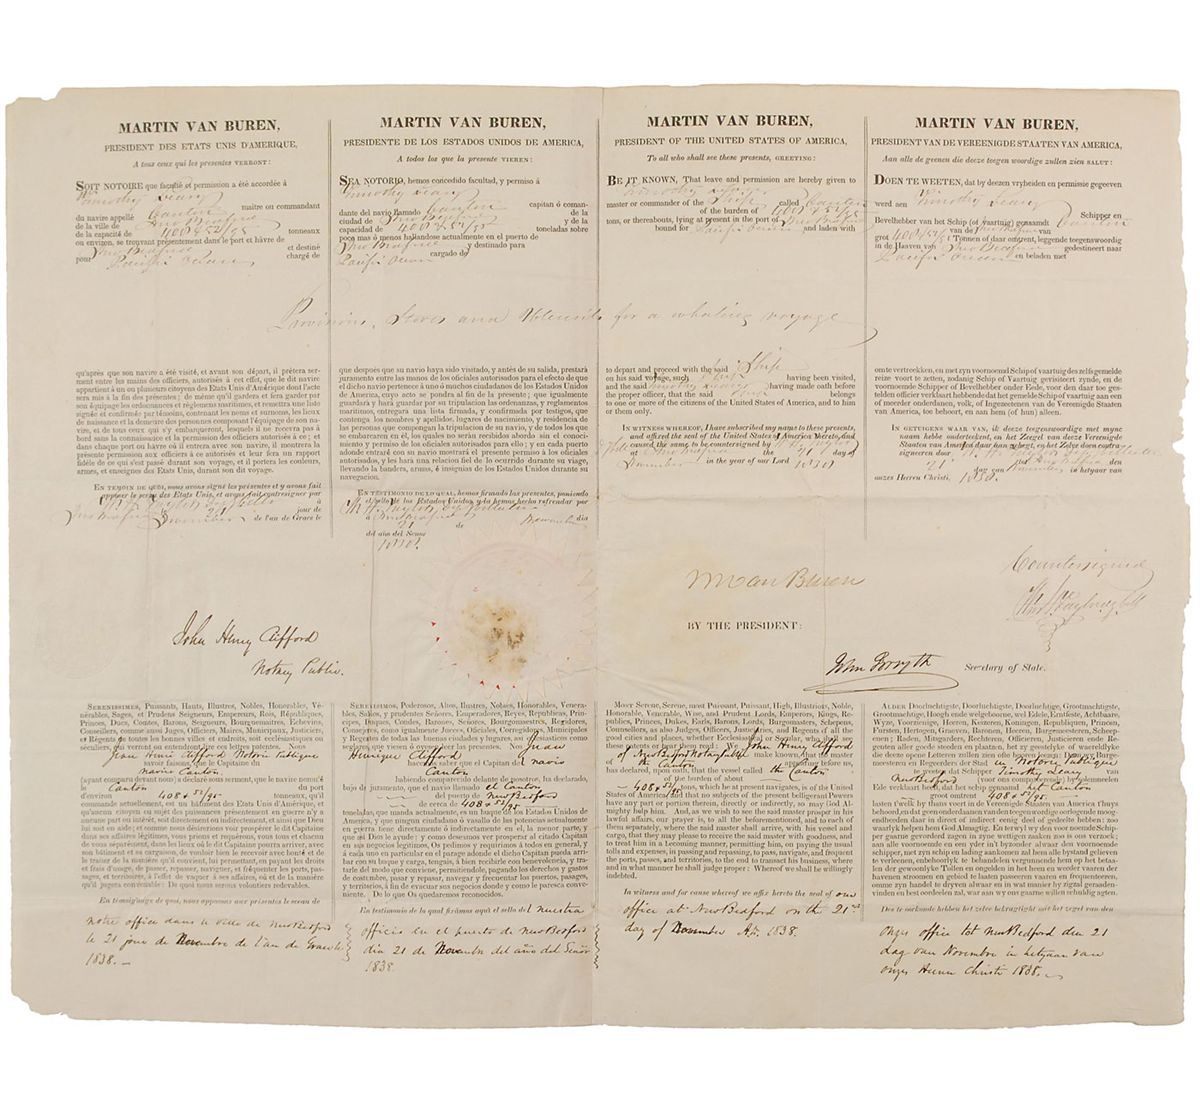 MARTIN VAN BUREN,
PRESIDENT DES ETATS UNIS D'AMERIQUE,
A tous ceux qui les presentes VERRONT:
SOIT NOTOIRE que faculté et permission a été accordée à
Timothy Leary
maître ou commandant
du navire appellé Canton
de la ville de New Bedford
de la capacité de 408 & 52/95 tonneaux
ou environ, se trouvant présentement dans le port et hàvre de
New Bedford et destiné
pour Pacific Ocean chargé de
MARTIN VAN BUREN,
PRESIDENTE DE LOS ESTADOS UNIDOS DE AMERICA,
A todos los que la presente VIEREN:
SEA NOTORIO, hemos concedido facultad, y permiso á
Timothy Leary
capitan ó coman-
dante del navio llamado Canton de la
ciudad de New Bedford y de la
capacidad de 408 & 52/95 toneladas sobre
poco mas ó menos hallandose actualmente en el puerto de
New Bedford y destinado para
Pacific Ocean cargado de
MARTIN VAN BUREN,
PRESIDENT OF THE UNITED STATES OF AMERICA,
To all who shall see these presents, GREETING:
BE IT KNOWN, That leave and permission are hereby given to
Timothy Leary
master or commander of the Ship called Canton
of the burden of 408 & 52/95
tons, or thereabouts, lying at present in the port of New Bedford
bound for Pacific Ocean and laden with
MARTIN VAN BUREN,
PRESIDENT VAN DE VEREENIGDE STAATEN VAN AMERICA,
Aan alle de geenen die deeze tegen woordige zullen zien SALUT:
DOEN TE WEETEN, dat by deezen vryheiden en permissie gegeeven
werd aen Timothy Leary
Schipper en
Bevelhebber van het Schip (of vaartuig) genaamdt Canton
van de New Bedford van
grot 408 52/95 Tonnen of daar omtrent, leggende tegenswoordig
in de Haaven van New Bedford gedestineert naar
Pacific Ocean en beladen met
Provisions, Stores and Utensils for a whaling voyage
qu'après que son navire a été visité, et avant son départ, il prêtera ser-
ment entre les mains des officiers, autorisés à cet effet, que le dit navire
appartient à un ou plusieurs citoyens des Etats Unis d'Amérique dont l'acte
sera mis à la fin des présentes; de même qu'il gardera et fera garder par
son équipage les ordonnances et règlemens maritimes, et remettra une liste
signée et confirmée par témoins, contenant les noms et surnoms, les lieux
de naissance et la demeure des personnes composant l'équipage de son na-
vire, et de tous ceux qui s'y embarqueront, lesquels il ne recevra pas à
bord sans la connaissance et la permission des officiers autorisés à ce; et
dans chaque port ou hâvre où il entrera avec son navire, il montrera la
présente permission aux officiers à ce autorisés et leur fera un rapport
fidèle de ce qui s'est passé durant son voyage, et il portera les couleurs,
armes, et enseignes des Etats Unis, durant son dit voyage.
EN TEMOIN DE QUOI, nous avons signé les présentes et y avons fait
apposer le sceau des Etats Unis, et avons fait contresigner par
New Bedford le 21 jour de
November de l'an de Grace le
que despues que su navio haya sido visitado, y antés de su salida, prestará
juramento entre las manos de los oficiales autorizados para el efecto de que
el dicho navio pertenece á uno ó muchos ciudadanos de los Estados Unidos
de America, cuyo acto se pondra al fin de la presente; que igualmente
guardará y hará guardar por su tripulacion las ordenanzas, y reglamentos
maritimos, entregara una lista firmada, y confirmada por testigos, que
contenga los nombres y apellidos, lugares de nacimiento, y residencia de
las personas que compongan la tripulacion de su navio, y de todos los que
se embarcaren en él, los quales no serán recibidos abordo sin el conoci-
miento y permiso de los oficiales autorizados para ello; y en cada puerto
donde entraré con su navio mostrará el presente permiso á los oficiales
autorizados, y les hará una relacion fiel de lo ocurrido durante su viage,
llevando la bandera, armas, é insignias de los Estados Unidos durante su
navegacion.
EN TESTIMONIO DE LO QUAL, hemos firmado las presentes, poniendo
el sello de los Estados Unidos, y la hemos hecho refrendar por
á New Bedford dia
21 de November
del año del Senor
1838.
to depart and proceed with the said Ship
on his said voyage, such Ship having been visited,
and the said Timothy Leary having made oath before
the proper officer, that the said Ship belongs
to one or more of the citizens of the United States of America, and to him
or them only.
IN WITNESS WHEREOF, I have subscribed my name to these presents,
and affixed the seal of the United States of America thereto, and
caused the same to be countersigned by
at New Bedford the 21st day of
November in the year of our Lord
1838
om te vertrekken, en met zyn voornoemd Schip of vaartuig des zelfsgemelde
reize voort te zetten, nodanig Schip of Vaartuig gevisiteert zynde, en de
voornoemde Schipper onder eede, voor den daar toe ges-
telden officier verklaart hebbende dat het gemelde Schip of vaartuig aan een
of meerder onderdanen, volk, of Ingezetenen van de Vereenigde Staaten
van America, toe behoort, en aan hem (of hun) alleen.
IN GETUIGENS WAAR VAN, ik deeze tegenswoordige met myne
naam hebbe onderteekent, en het Zeegel van deze Vereenigde
Staaten van America daar aan gehegt, en het Zelve doen contra
signeeren door
tot New Bedford den
21 dag van November in het jaar van
onzes Heeren Christi, 1838.
M Van Buren
BY THE PRESIDENT:
John Forsyth Secretary of State.
Countersigned
John Henry Clifford
Notary Public.
SERENISSIMES, Puissants, Hauts, Illustres, Nobles, Honorables, Vé-
nérables, Sages, et Prudens Seigneurs, Empereurs, Rois, Républiques,
Princes, Ducs, Comtes, Barons, Seigneurs, Bourguemaitres, Echevins,
Conseillers, comme aussi Juges, Officiers, Maires, Municipaux, Justiciers,
et Régents de toutes les bonnes villes et endroits, soit ecclésiastiques ou
séculiers, qui verront ou entendront lire ces lettres patentes. Nous
Jean Henri Clifford Notaire Publique
savoir faisons, que le Capitaine du
navire Canton
(ayant comparu devant nous) a déclaré sous serment, que le navire nommé
le Canton du port
d'environ 408 & 52/95 tonneaux, qu'il
commande actuellement, est un bâtiment des Etats Unis d'Amérique, et
qu'aucun citoyen ou sujet des puissances présentement en guerre n'y a
aucune part ou intérêt, soit directement ou indirectement, et ainsi que Dieu
lui soit en aide; et comme nous désirerions voir prospérer le dit Capitaine
dans ses affaires légitimes, nous vous prions et requérons tous, et chacun
de vous séparément, dans les lieux où le dit Capitaine pourra arriver, avec
son bâtiment et sa cargaison, de vouloir bien le recevoir avec bonté et de
le traiter de la manière qu'il convient, lui permettant, en payant les droits
et frais d'usage, de passer, repasser, naviguer, et fréquenter les ports, pas-
sages, et territoires, à l'effet de vaquer à ses affaires, où et de la manière
qu'il jugera convenable: De quoi nous serons volontiers redevables.
En témoignage de quoi, nous apposons aux présentes le sceau de
notre office dans la ville de New Bedford
le 21 jour de Novembre de l'an de Grace le
1838.—
SERENISIMOS, Poderosos, Altos, Ilustres, Nobles, Honorables, Venera-
bles, Sabios, y prudentes Señores, Emperadores, Reyes, Republicas, Prin-
cipes, Duques, Condes, Barones, Señores, Burgomaestres, Regidores,
Consejeros, como igualmente Jueces, Oficiales, Corregidores, Municipales
y Regentes de todas las buenas ciudades y lugares, asi eclesiasticos como
seglares que viesen ó oyesen leer las presentes. Nos Juan
Henrique Clifford
hacemos saber que el Capitan del navio
Canton
habiendo comparecido delante de nosotros, ha declarado,
bajo de juramento, que el navio llamado el Canton
del puerto de New Bedford
de cerca de 408 & 52/95
toneladas, que manda actualmente, es un buque de los Estados Unidos de
America, y que ningun ciudadano ó vasallo de las potencias actualmente
en guerra tiene directamente ó indirectamente en él, la menor parte, y
que asi Dios le ayude: y como desearemos ver prosperar al citado Capitan
en sus negocios legitimos, Os pedimos y requirimos á todos en general, y
á cada uno en particular en el parage adonde el dicho Capitan pueda arri-
bar con su buque y carga, tengais, á bien recibirle con benevolencia, y tra-
tarle del modo que convieme, permitiendole, pagando los derechos y gastos
de costumbre, pasar y repasar, navegar y frecuentar los puertos, pasages,
y territorios, á fin de evacuar sus negocios donde y como le paresca conve-
niente. De lo que Os quedaremos reconocidos.
En testimonio de lo qual firámos aqui el sello del nuestra
officio en el puerto de New Bedford
dia 21 de Novembr del año del Señor
1838.
MOST Serene, Serene, most Puissant, Puissant, High, Illustrious, Noble,
Honorable, Venerable, Wise, and Prudent Lords, Emperors, Kings, Re-
publics, Princes, Dukes, Earls, Barons, Lords, Burgomasters, Schepens,
Counsellors, as also Judges, Officers, Justiciaries, and Regents of all the
good cities and places, whether Ecclesiastical or Secular, who shall see
these patents or hear them read: We John Henry Clifford
of New Bedford Notary Public make known, that the master of
the Canton appearing before us,
has declared, upon oath, that the vessel called the Canton
of the burden of about —
— 408 & 52/95 tons, which he at present navigates, is of the United
States of America and that no subjects of the present belligerent Powers
have any part or portion therein, directly or indirectly, so may God Al-
mighty help him. And, as we wish to see the said master prosper in his
lawful affairs, our prayer is, to all the beforementioned, and to each of
them separately, where the said master shall arrive, with his vessel and
cargo, that they may please to receive the said master with goodness, and
to treat him in a becoming manner, permitting him, on paying the usual
tolls and expenses in passing and repassing, to pass, navigate, and frequent
the ports, passes, and territories, to the end to transact his business, where
and in what manner he shall judge proper: Whereof we shall be willingly
indebted.
In witness and for cause whereof we affix hereto the seal of our
office at New Bedford on the 21st
day of November A.D. 1838.
ALDER Doorluchtigste, Doorluchtige, Doorluchtige, Grootmachtigste,
Grootmachtige, Hoogh ende welgeboorne, wel Edele, Erntfeste, Achtbaare,
Wyze, Voorzienige, Heeren, Keizeren, Koningen, Republiquen, Princen,
Fursten, Hertogen, Graeven, Baronen, Heeren, Burgemeesteren, Schee-
penen; Raden, Mitsgarders, Rechteren, Officieren, Justicieren ende Re-
genten aller goede steeden en plaatsen, het zy geestelyke of waereldlyke
die deeze opene Letteren zullen zien ofte hooren leezen: Doen Burge-
meesteren en Regeerders de Stad en Notaris Publique
te weeten dat Schipper Timothy Leary van
New Bedford voor ons compareerende, by solemneelen
Ede verklaart heeft, dat het schip genaamd het Canton
groot omtrent 408 & 52/95
lasten t'welk by thans voert in de Vereenigde Staaten van America t'huys
behoord, en dat geen onderdaanen van de tegenwoordige oorlogende moog-
endheden daar in direct of indirect eenig deel of gedeelte hebben: zoo
waarlyk helpen hem God Almagtig. En terwyl wy den voor noemde Schip-
per aan alle voornoemde en een yder in't byzonder alwaar den voornoemde
schipper, met zyn schip en lading aankoomen zal alle bystand gelieven
te verleenen, enbehoorlyk te behandelen vergunnende hem op het betaa-
len der gewoonlyke Tollen en ongelden in het heen en weeder vaaren der
havenen stroomen en gebied te laaten passeeren vaaren en frequenteeren,
omme zyn handel te dryven alwaar en in wat manier hy rigtaf geraaden-
en en best oordeelen zal, waar aan wy ons gaarne willen schuldig agten.
Des te oorkonde hebben het zelve bekragtight mit het zegel van den
onze office tot New Bedford den 21
dag van Novembre in hetjaar van
onzes Heeren Christi 1838.